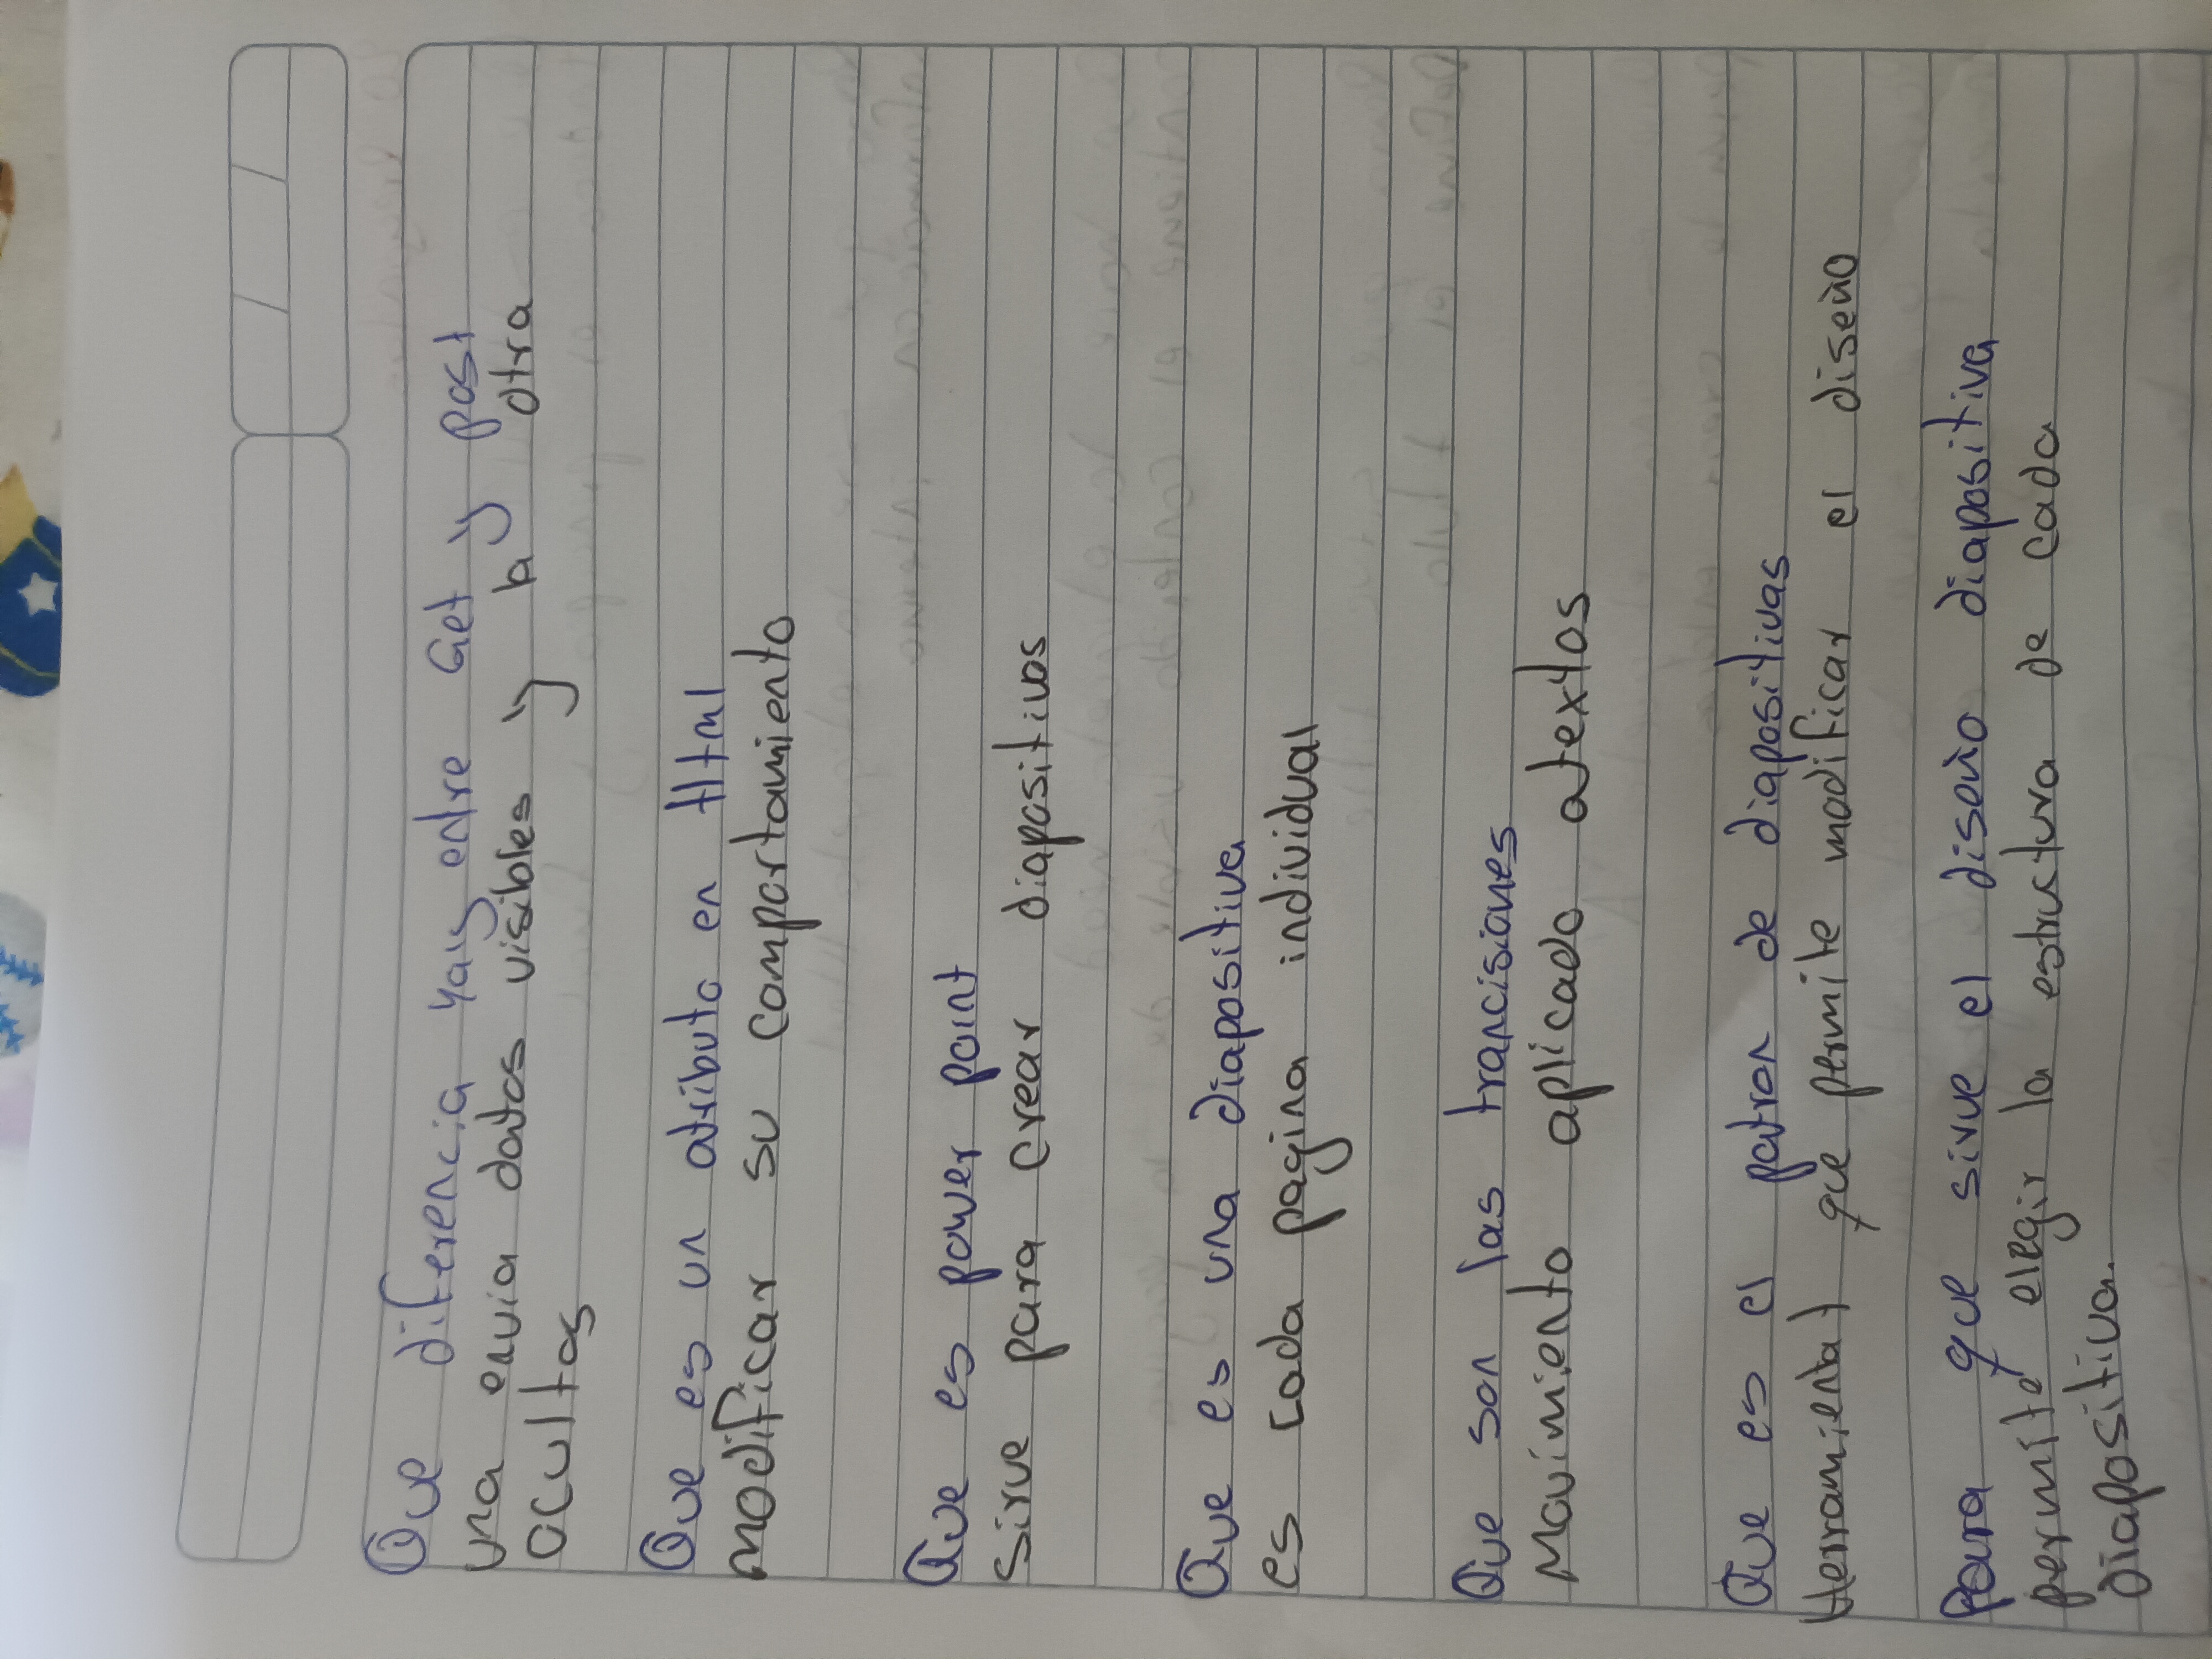 Que diferencia yay entre Get y post
una envia datos visibles y la otra
ocultos
Que es un atributo en Html
modificar su comportamiento
Que es power point
sirve para crear diapositivas
Que es una diapositiva
es cada pagina individual
Que son las tranciSiones
Movimiento aplicado atextos
Que es el patron de diapositivas
Herramienta que permite modificar el diseño
Para que sirve el diseño diapositiva
permite elegir la estructura de cada
Diapositiva.